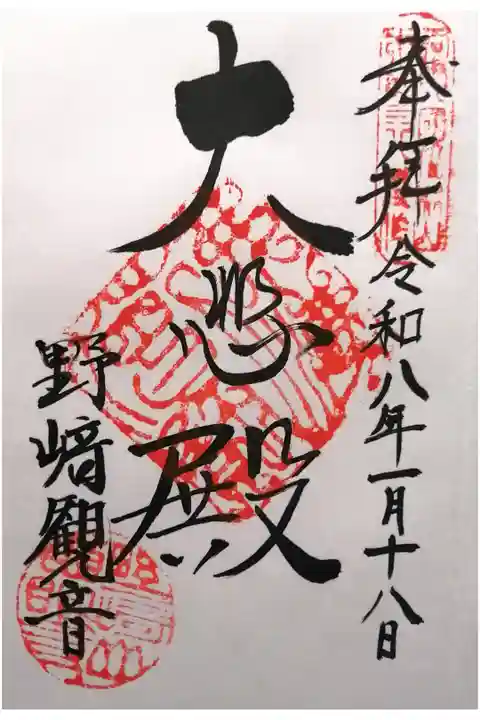 奉拜 令和八年一月十八日
大悲殿
野﨑觀音